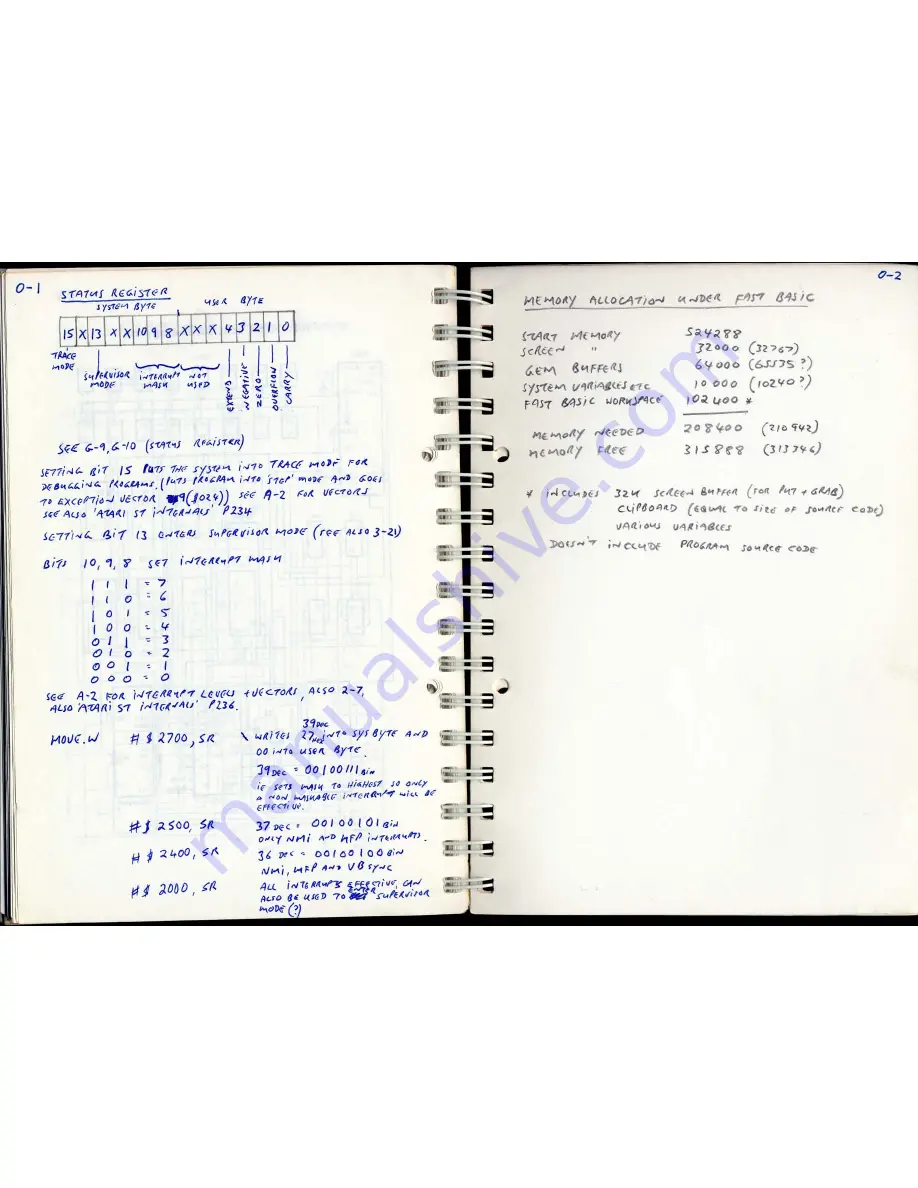 0-1
STATUS REGISTER
SYSTEM BYTE USER BYTE
15 X 13 X X 10 9 8 X X X 4 3 2 1 0
TRACE MODE
SUPERVISOR MODE
INTERRUPT MASK
NOT USED
EXTEND
NEGATIVE
ZERO
OVERFLOW
CARRY
SEE G-9, G-10 (STATUS REGISTER)
SETTING BIT 15 PUTS THE SYSTEM INTO TRACE MODE FOR
DEBUGGING PROGRAMS. (PUTS PROGRAM INTO 'STEP' MODE AND GOES
TO EXCEPTION VECTOR 9 ($024)) SEE A-2 FOR VECTORS
SEE ALSO 'ATARI ST INTERNALS' P234
SETTING BIT 13 ENTERS SUPERVISOR MODE (SEE ALSO 3-21)
BITS 10, 9, 8 SET INTERRUPT MASK
1 1 1 = 7
1 1 0 = 6
1 0 1 = 5
1 0 0 = 4
0 1 1 = 3
0 1 0 = 2
0 0 1 = 1
0 0 0 = 0
SEE A-2 FOR INTERRUPT LEVELS + VECTORS, ALSO 2-7,
ALSO 'ATARI ST INTERNALS' P236.
39 DEC
MOVE.W #$2700, SR \ WRITES 27 HEX INTO SYS BYTE AND
00 INTO USER BYTE.
39 DEC = 00100111 BIN
IE SETS MASK TO HIGHEST SO ONLY
A NON MASKABLE INTERRUPT WILL BE
EFFECTIVE.
#$2500, SR 37 DEC = 00100101 BIN
ONLY NMI AND MFP INTERRUPTS.
#$2400, SR 36 DEC = 00100100 BIN
NMI, MFP AND VBSYNC
#$2000, SR ALL INTERRUPTS EFFECTIVE, CAN
ALSO BE USED TO ENTER SUPERVISOR
MODE (?)
0-2
MEMORY ALLOCATION UNDER FAST BASIC
START MEMORY 524288
SCREEN " 32000 (32767)
GEM BUFFERS 64000 (65535?)
SYSTEM VARIABLES ETC 10000 (10240?)
FAST BASIC WORKSPACE 102400 *
MEMORY NEEDED 208400 (210942)
MEMORY FREE 315888 (313346)
* INCLUDES 32K SCREEN BUFFER (FOR PUT + GRAB)
CLIPBOARD (EQUAL TO SIZE OF SOURCE CODE)
VARIOUS VARIABLES
DOESN'T INCLUDE PROGRAM SOURCE CODE
manualshive.com